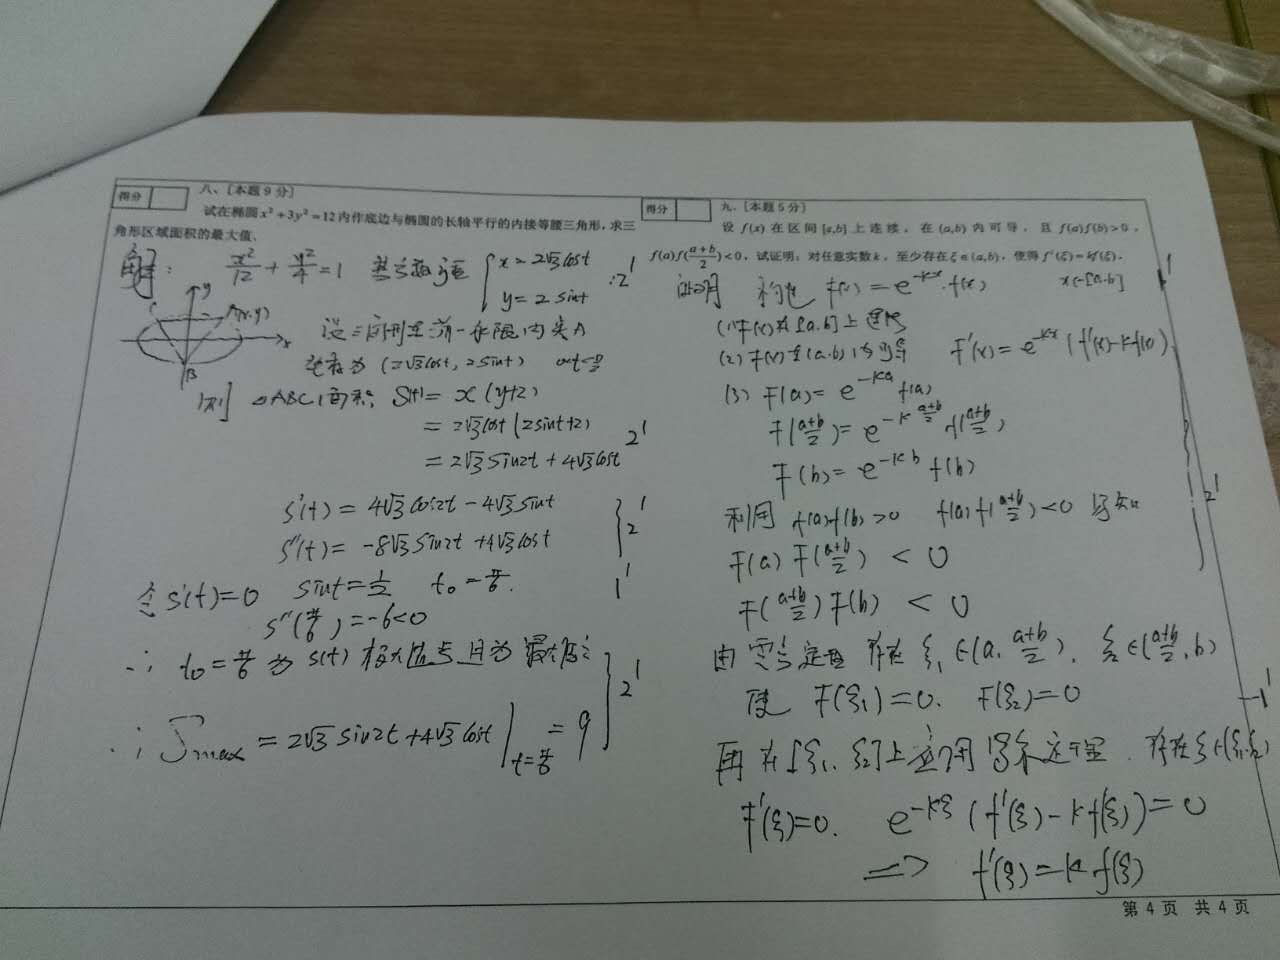 得分
八、[本题9分]
试在椭圆 x²+3y²=12 内作底边与椭圆的长轴平行的内接等腰三角形，求三
角形区域面积的最大值.
解: x²/12 + y²/4 = 1 其参数方程 { x=2√3cost
y=2sint
2'
y
C
A(x,y)
x
B
设三角形在第一象限内点A
坐标为 (2√3cost, 2sint) 0<t<π/2
则 △ABC面积 S(t)= x(y+2)
= 2√3cost(2sint+2)
= 2√3sin2t+4√3cost 2'
S'(t)= 4√3cos2t-4√3sint
S''(t)= -8√3sin2t+4√3cost
2'
令S'(t)=0 sint=1/2 t₀=π/6. 1'
S''(π/6)=-6<0
∴ t₀=π/6 为 S(t) 极大值点且为最大值点
∴ Smax = 2√3sin2t+4√3cost | t=π/6 = 9
2'
得分
九. [本题5分]
设 f(x) 在区间 [a,b] 上连续，在 (a,b) 内可导，且 f(a)f(b)>0，
f(a)f((a+b)/2)<0，试证明：对任意实数 k，至少存在 ξ∈(a,b)，使得 f'(ξ)=kf(ξ).
证明 构造 F(x)=e^{-kx}·f(x) x∈[a,b] 1'
(1) F(x)在[a,b]上连续
(2) F(x)在(a,b)内可导 F'(x)=e^{-kx}(f'(x)-kf(x))
(3) F(a)= e^{-ka} f(a)
F((a+b)/2)= e^{-k(a+b)/2} f((a+b)/2)
F(b)= e^{-kb} f(b)
利用 f(a)f(b)>0 f(a)f((a+b)/2)<0 易知
2'
F(a)F((a+b)/2) < 0
F((a+b)/2)F(b) < 0
由零点定理 存在 ξ₁∈(a, (a+b)/2), ξ₂∈((a+b)/2, b)
使 F(ξ₁)=0. F(ξ₂)=0 1'
再在[ξ₁, ξ₂]上应用罗尔定理. 存在ξ∈(ξ₁,ξ₂)
F'(ξ)=0. e^{-kξ}(f'(ξ)-kf(ξ))=0
⇒ f'(ξ)=kf(ξ)
第 4 页 共 4 页